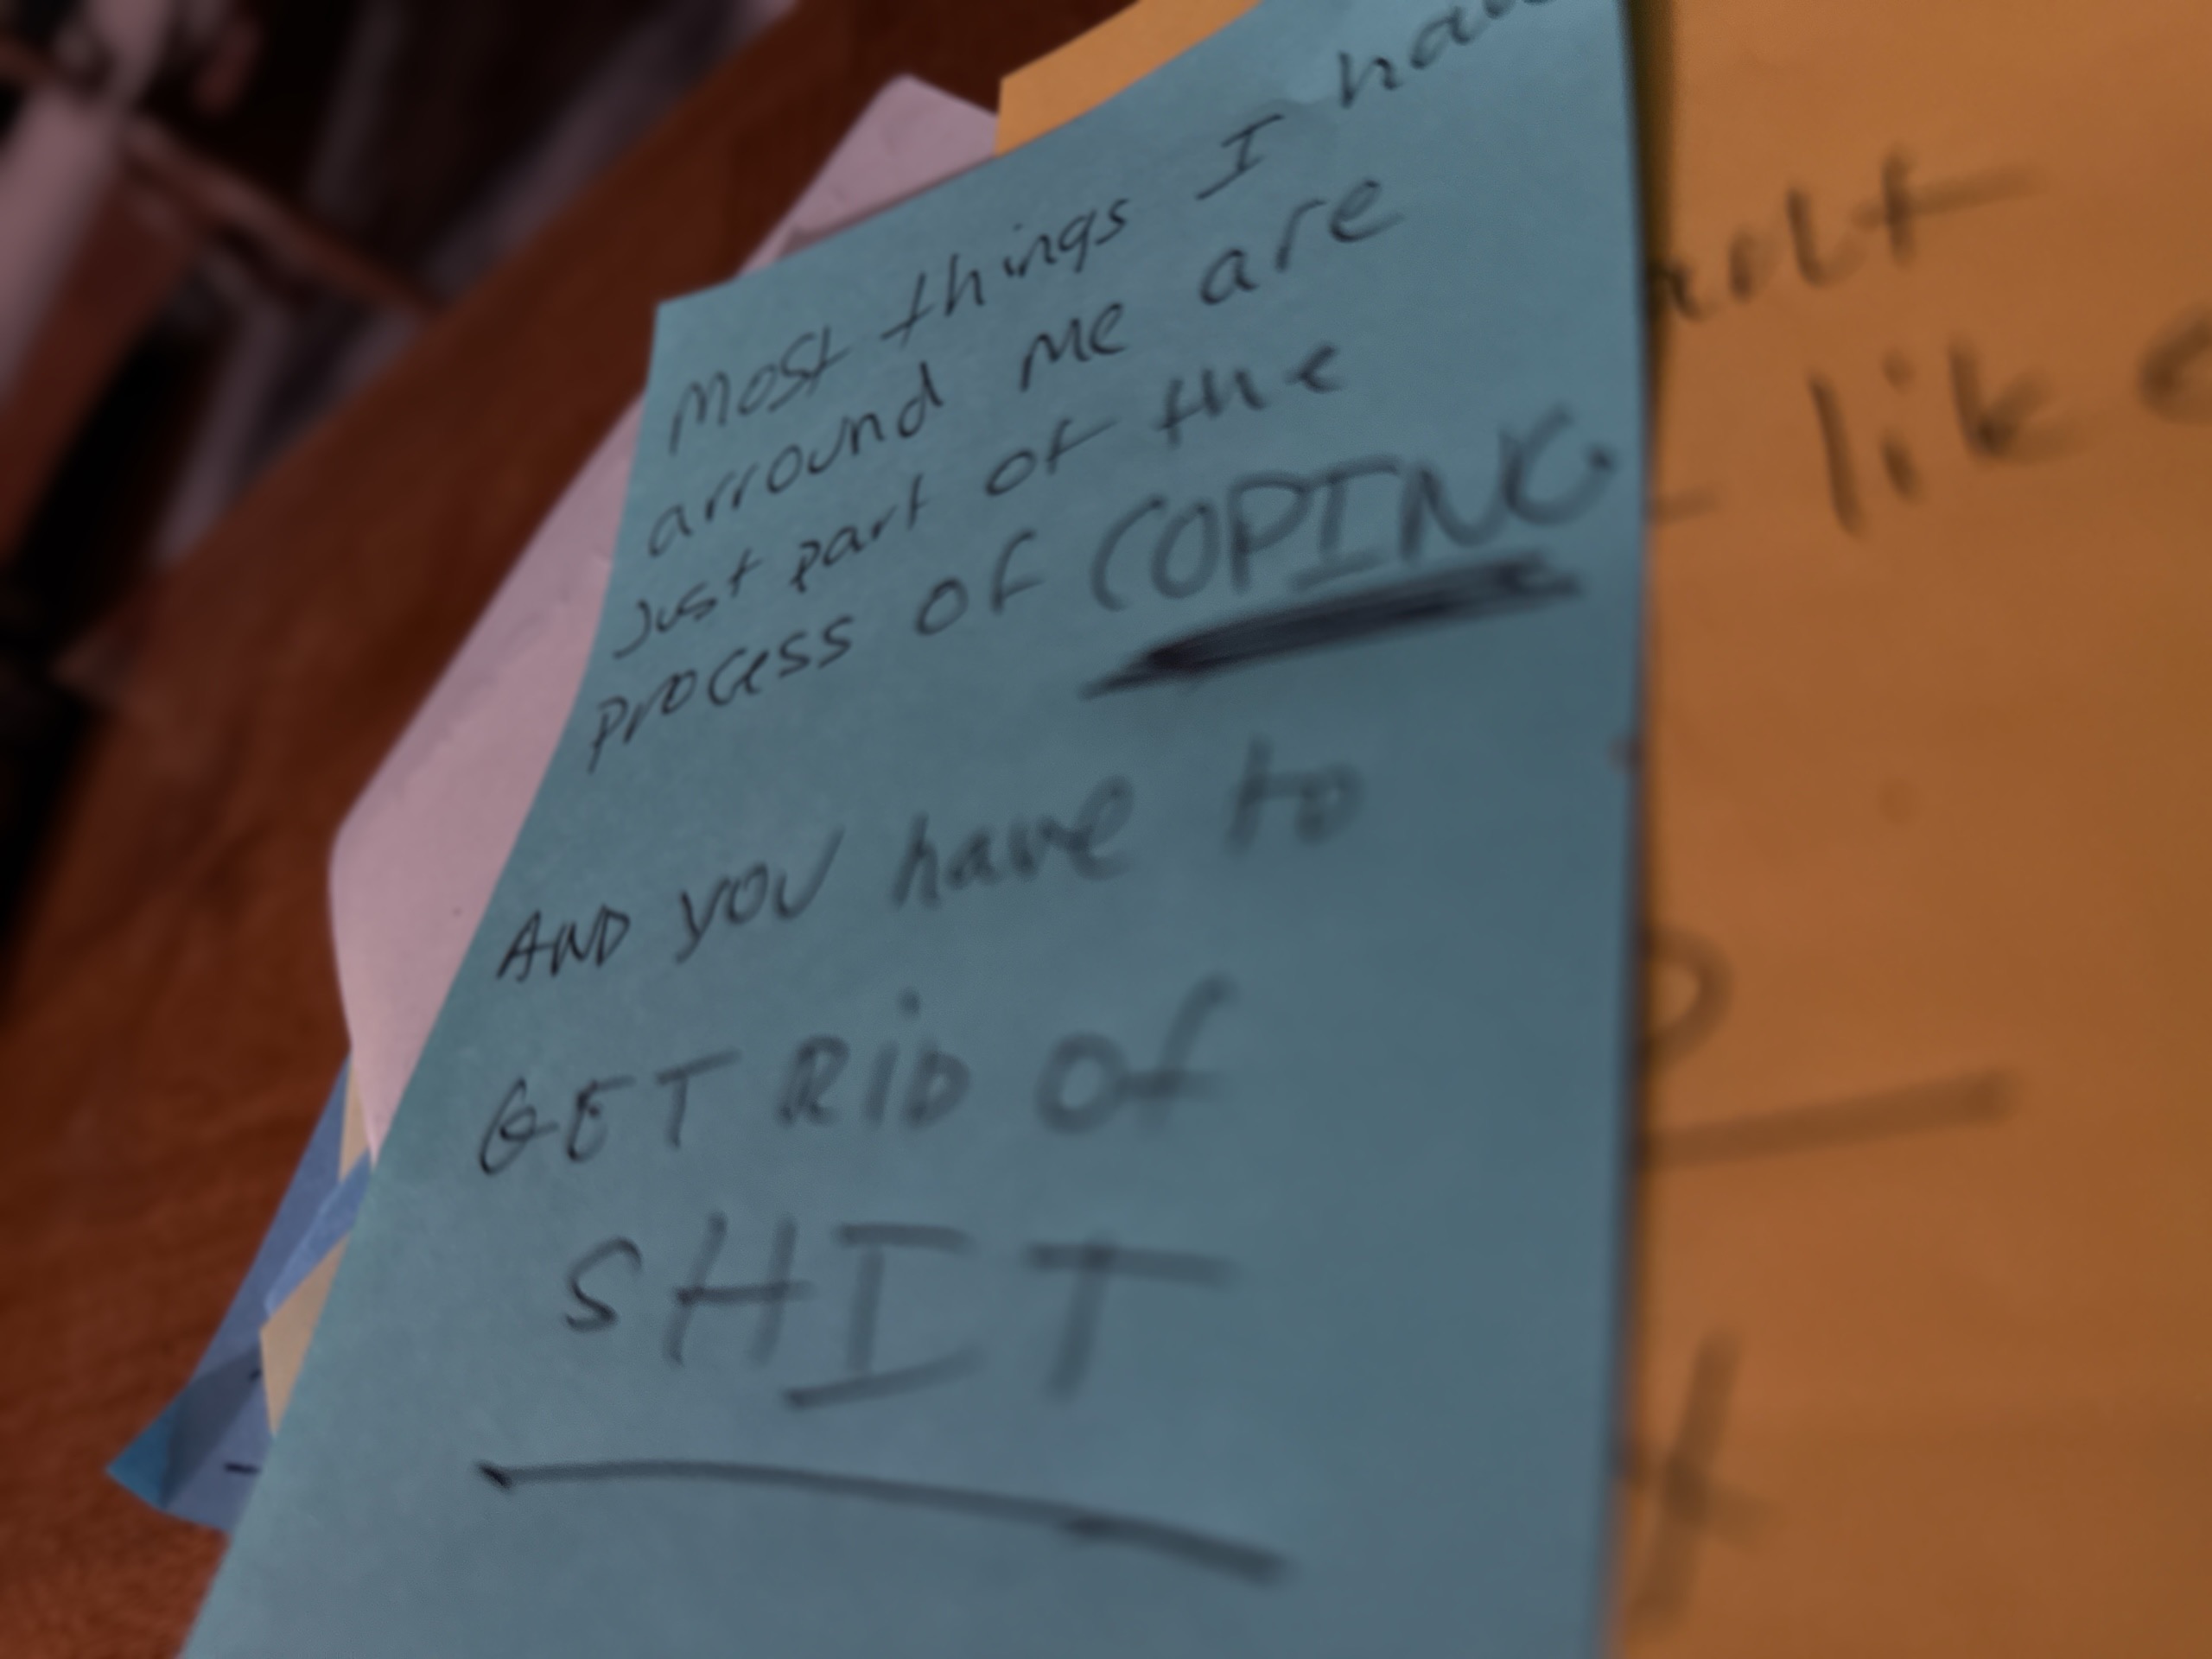 Most things I
arround me are
just part of the
process of COPING
AND YOU have to
GET RID Of
SHIT
like